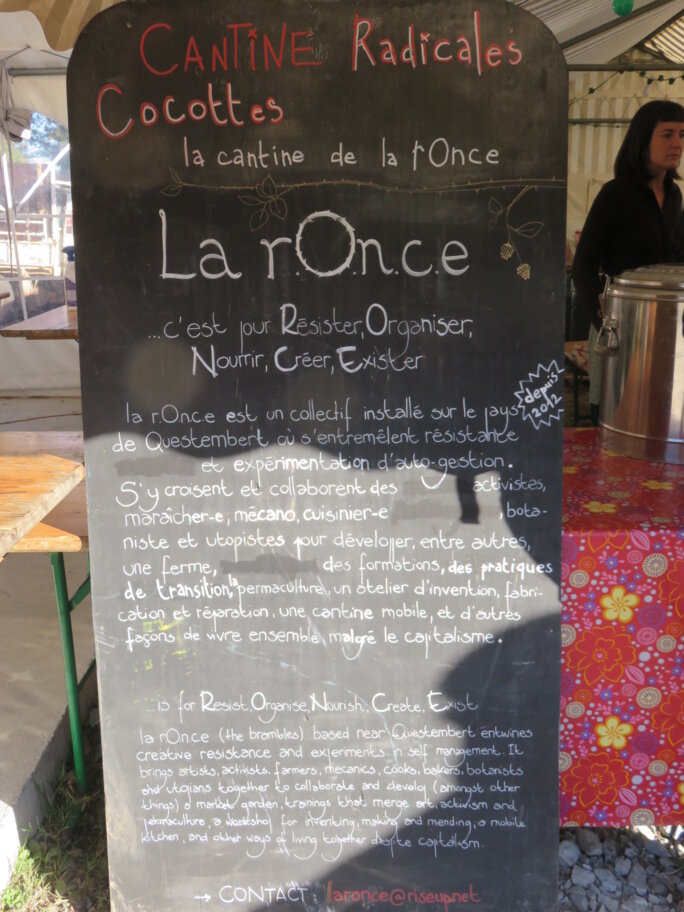 CANTINE Radicales
Cocottes
la cantine de la rOnce
La r.O.n.c.e
...c'est pour Résister, Organiser,
Nourrir, Créer, Exister
depuis
2012
la r.O.n.c.e est un collectif installé sur le pays
de Questembert où s'entremêlent résistante
et expérimentation d'auto-gestion.
S'y croisent et collaborent des activistes,
maraîcher-e, mécano, cuisinier-e , bota-
niste et utopistes pour développer, entre autres,
une ferme, des formations, des pratiques
de transition, la permaculture, un atelier d'invention, fabri-
cation et réparation, une cantine mobile, et d'autres
façons de vivre ensemble malgré le capitalisme.
...is for Resist, Organise, Nourish, Create, Exist
la rOnce (the brambles) based near Questembert entwines
creative resistance and experiments in self management. It
brings artists, activists, farmers, mecanics, cooks, bakers, botanists
and utopians together to collaborate and develop (amongst other
things) a market garden, trainings that merge art, activism and
permaculture, a workshop for inventing, making and mending, a mobile
kitchen, and other ways of living together despite capitalism.
→ CONTACT: laronce@riseup.net